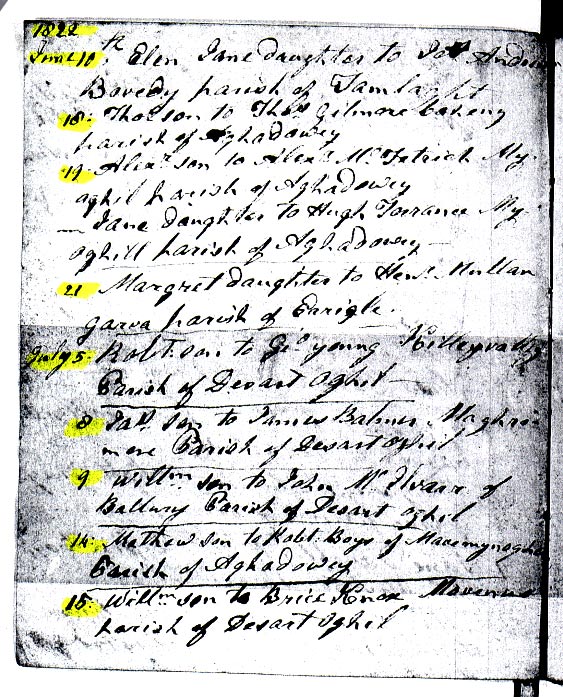 1822
June 10th. Elen Jane daughter to Jas Andrew
Bovedy parish of Tamlaght
18. Thos son to Thos. Gilmore
parish of Aghadowey
19 Alexr. son to Alexr. McFetrich My
oghil parish of Aghadowey
— Jane daughter to Hugh Torrance My
oghill parish of Aghadowey
21 Margret daughter to Henr. Mullan
garva parish of Earigle.
July 5. Robt. son to Geo young
Parish of Desart Oghil
8 Jas. son to James Balmer Maghra
more Parish of Desart Oghil
9 Willm son to John of
Parish of Desart Oghil
14. Mathew son to Robt. Boys of
Parish of Aghadowey
15. Willm son to Brice Knox
parish of Desart Oghil